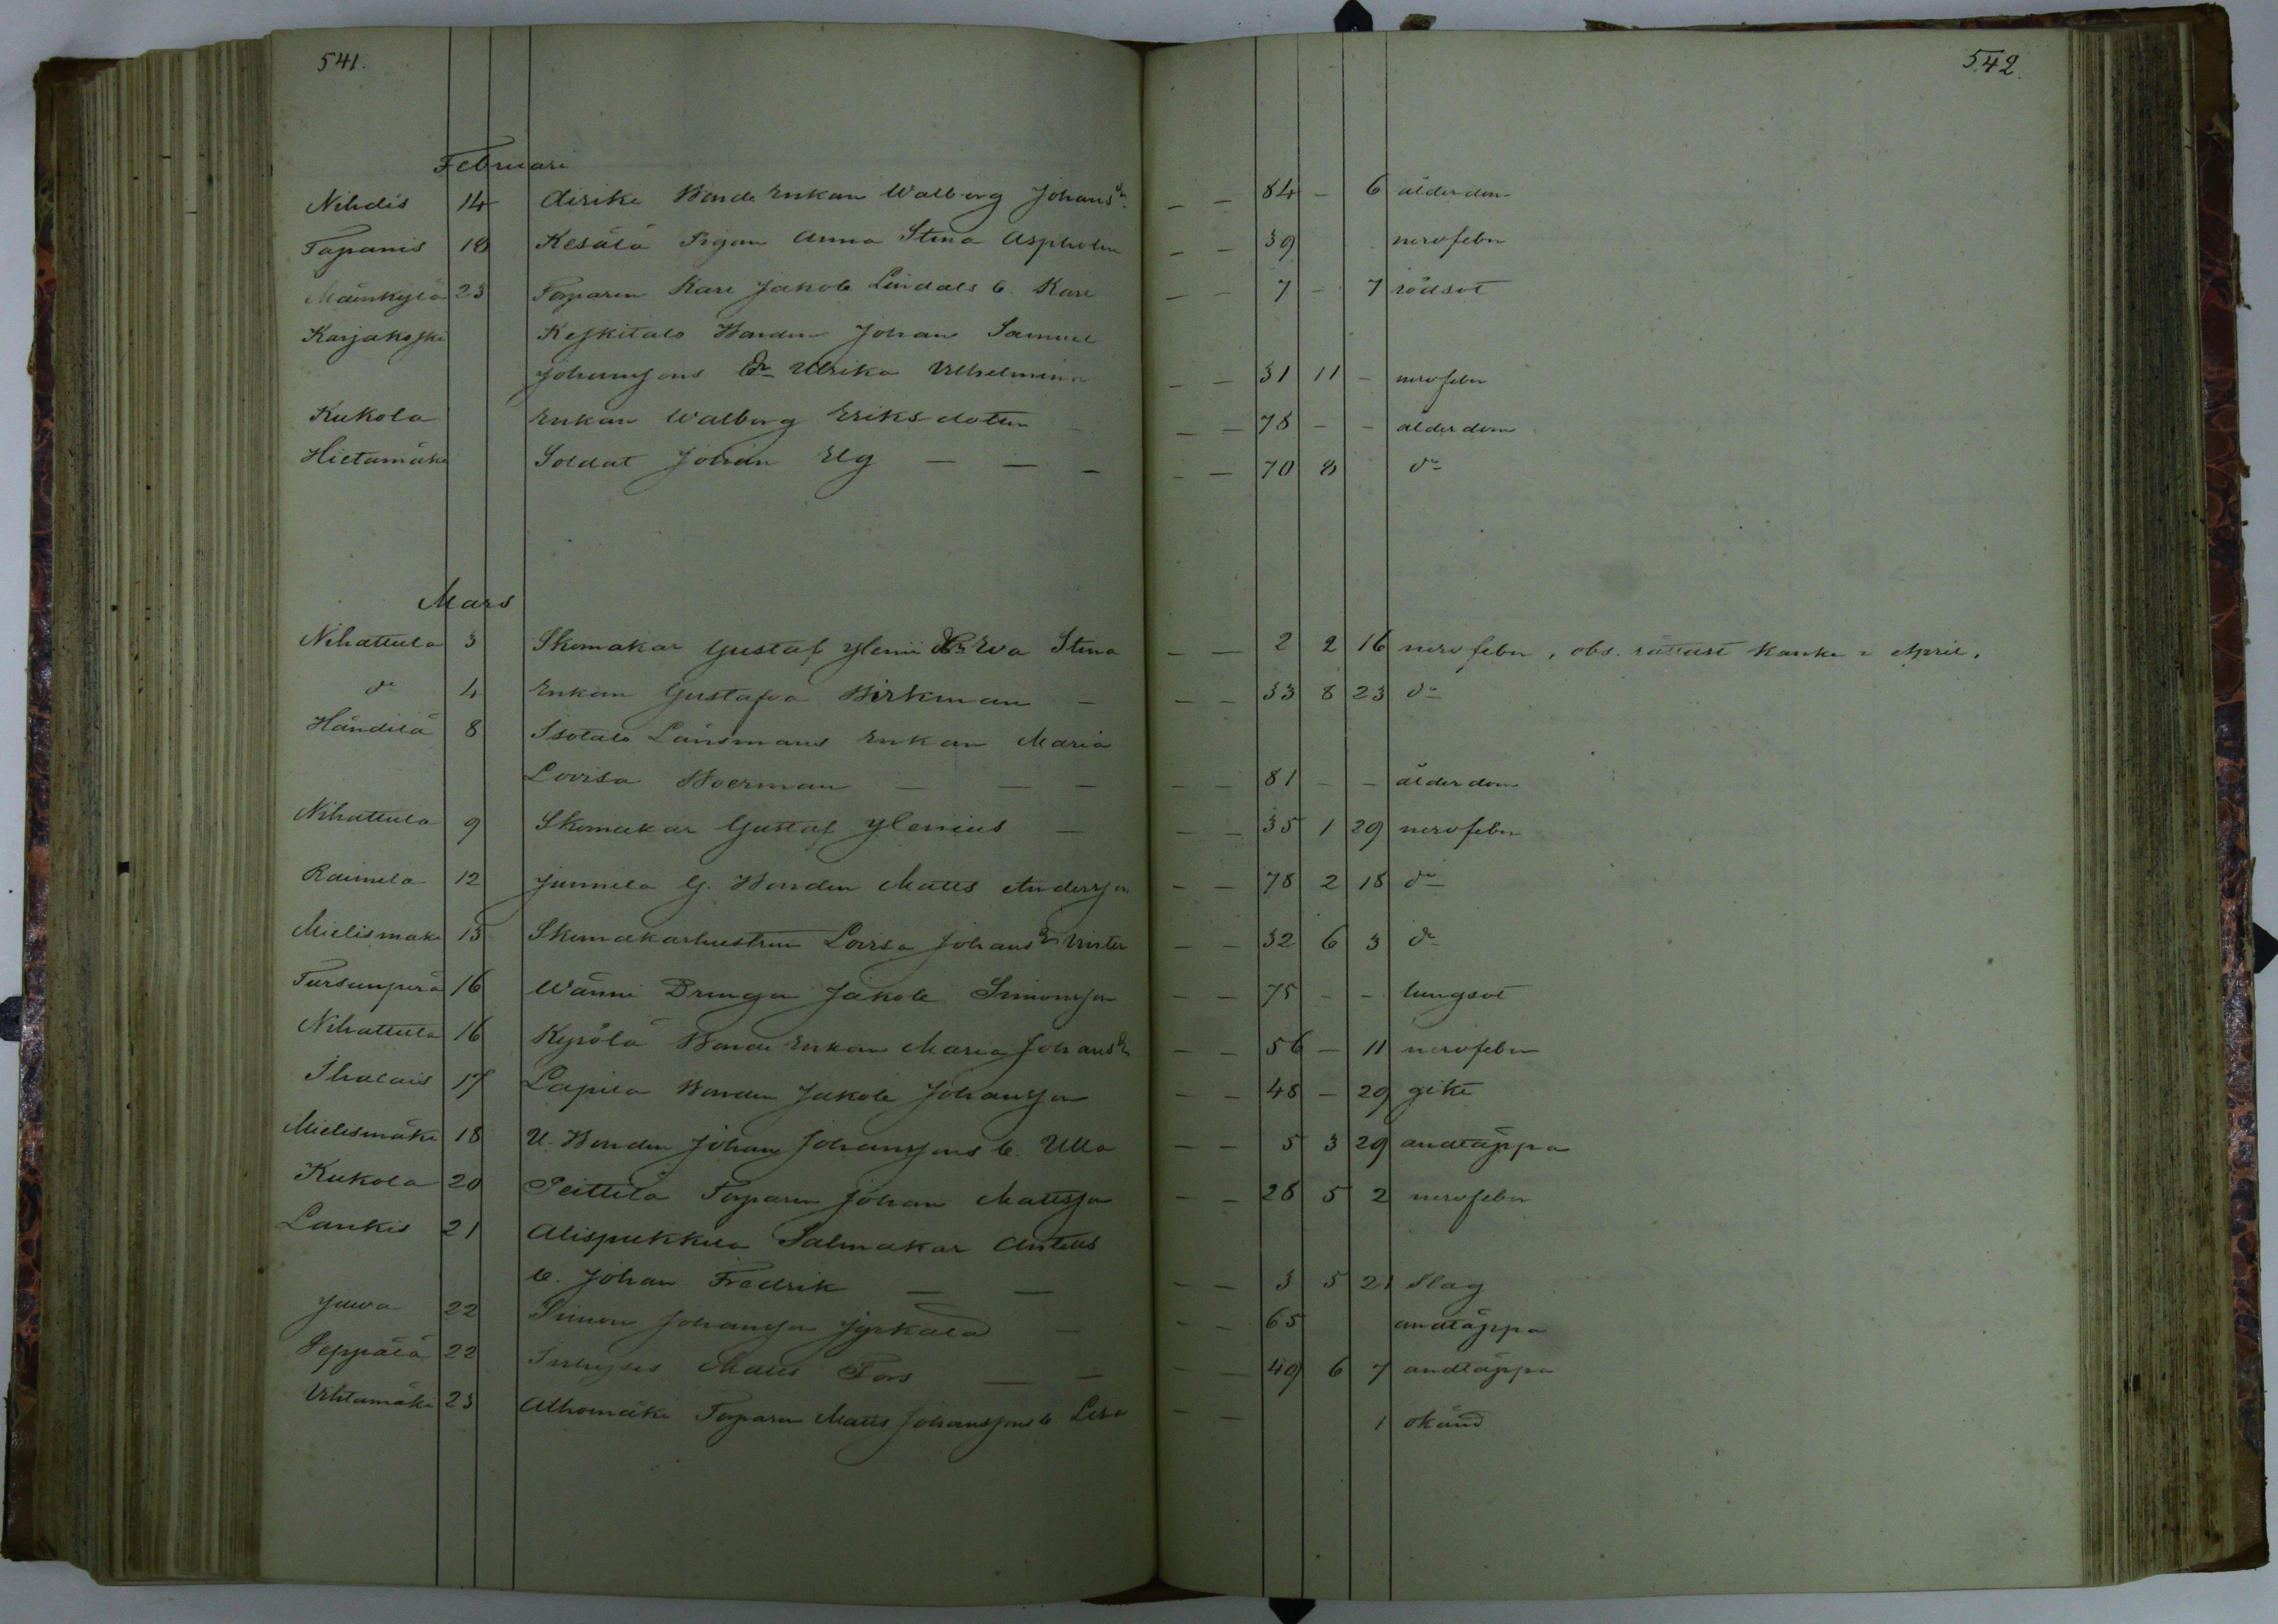 541.
542.
Februari
Nihdis 14 Airike Bonde Enkan Walborg Johans dr — — 84 — 6 ålderdom
Tapanis 18 Kesälä Pigan Anna Stina Aspholm — — 39 nervfeber
Mäenkylä 23 Torparen Karl Jakob Lindals b. Karl — — 7 — 7 rödsot
Karjakoski Keskitalo Bonden Johan Samuel
Johanssons dr Ulrika Vilhelmina — — 31 11 — nervfeber
Kukola Enkan Walborg Eriksdotter — — 78 — — ålderdom
Hietamäki Soldat Johan Elg — — — — — 70 8 do
Mars
Nihattula 3 Skomakar Gustaf Ylenii dr Eva Stina — — 2 2 16 nervfeber, obs. rättast kanke 2 April.
do 4 Enkan Gustafva Birkman — — — 33 8 23 do
Händilä 8 Isotalo Länsmans Enkan Maria
Lovisa Boerman — — — — — 81 — — ålderdom
Nihattula 9 Skomakar Gustaf Ylenius — — — 35 1 29 nervfeber
Raimela 12 Junnila G. Bonden Matts Andersson — — 78 2 18 do
Mielismäki 13 Skomakarhustrun Lovisa Johans dr Vinter — — 32 6 3 do
Tursunperä 16 Wänni Drängen Jakob Simonsson — — 75 — — lungsot
Nihattula 16 Kyrölä Bonde Enkan Maria Johans dr — — 56 — 11 nervfeber
Ihalais 17 Lapila Bonden Jakob Johansson — — 48 — 29 gikt
Mielismäki 18 U. Bonden Johan Johanssons b. Ulla — — 5 3 29 andtäppa
Kukola 20 Peittilä Torparen Johan Mattsson — — 28 5 2 nervfeber
Lankis 21 Alispukkila Salmakar Antells
b. Johan Fredrik — — — — 3 5 21 Slag
Juva 22 Simon Johansson Jyrkälä — — — 65 andtäppa
Seppälä 22 Inhyses Matts Fors — — — — 49 6 7 andtäppa
Uhtamäki 23 Alhomäki Torparen Matts Johanssons b Lisa — — 1 okänd